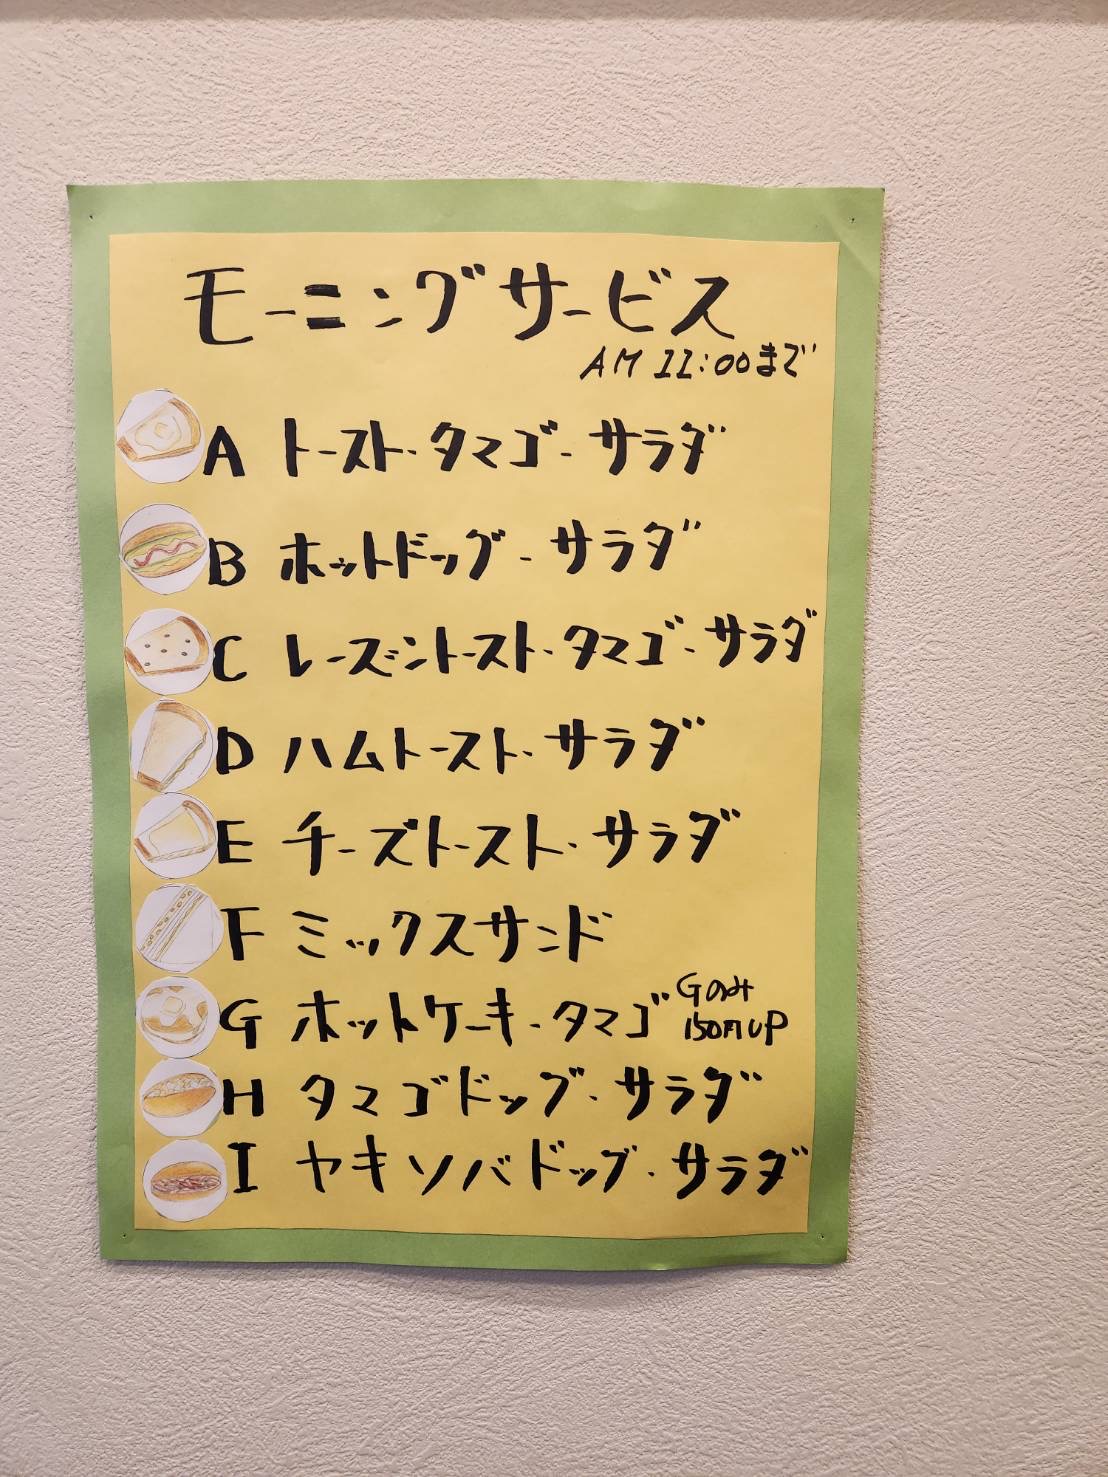 モーニングサービス
AM 11:00まで
A トースト・タマゴ・サラダ
B ホットドッグ・サラダ
C レーズントースト・タマゴ・サラダ
D ハムトースト・サラダ
E チーズトースト・サラダ
F ミックスサンド
G ホットケーキ・タマゴ Gのみ
150円UP
H タマゴドッグ・サラダ
I ヤキソバドッグ・サラダ